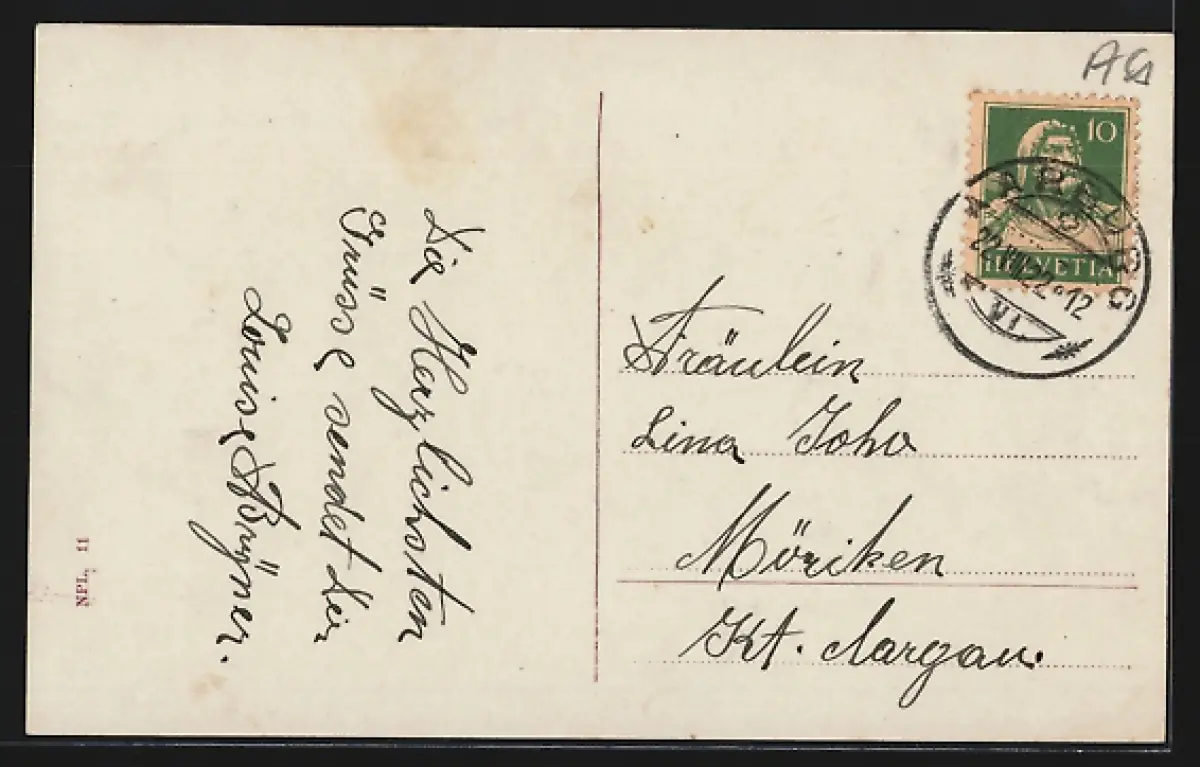 AG
10
HELVETIA
AARBURG
22.VIII.22.12
VI
Die Herzlichsten
Grüsse sendet dir
Louise Brÿner.
Fräulein
Lina Joho
Möriken
Kt. Aargau.
NPL. 11